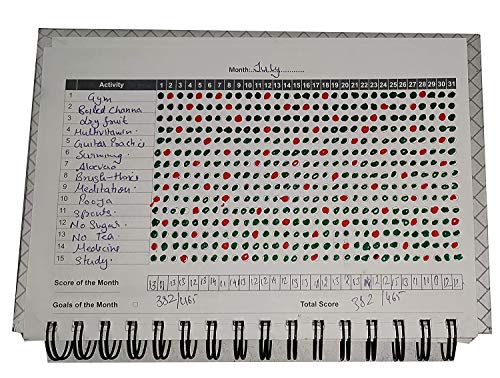 Month: July
Activity 1 2 3 4 5 6 7 8 9 10 11 12 13 14 15 16 17 18 19 20 21 22 23 24 25 26 27 28 29 30 31
1 Gym
2 Boiled Channa
3 dry fruit
4 Multivitamin.
5 Guitar
6 Swimming.
7
8 Brush-
9 Meditation.
10 Pooja
11 Sprouts.
12 No Sugar.
13 No Tea.
14 Medicine
15 Study.
Score of the Month
Goals of the Month 382/465 Total Score 382/465